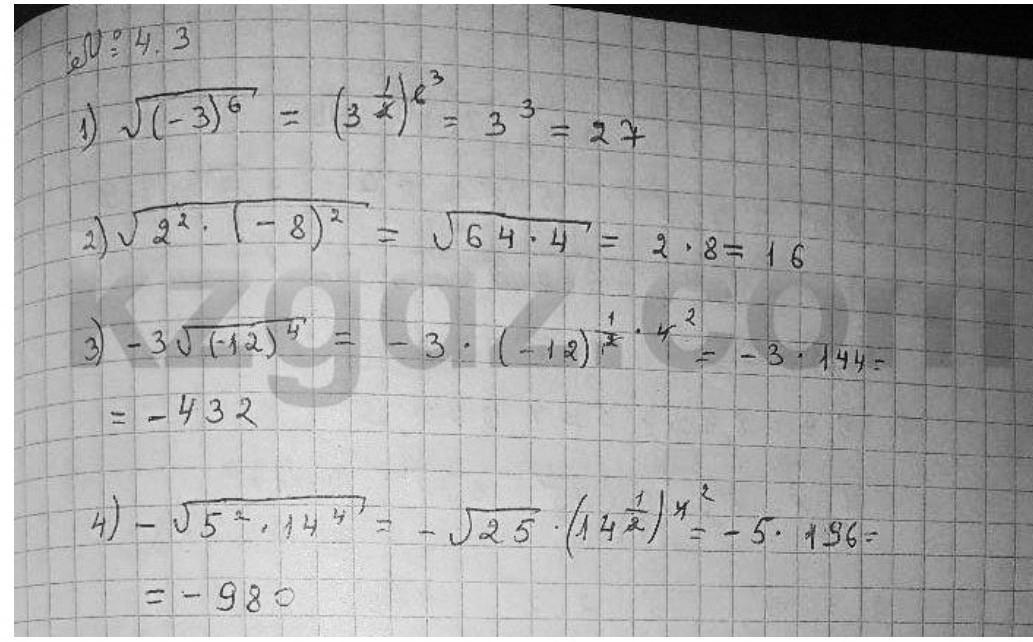 № 4.3
1) √(-3)^6 = (3^(1/2))^6^3 = 3^3 = 27
2) √2^2 · (-8)^2 = √64·4 = 2·8 = 16
kzgdz.com
3) -3√(-12)^4 = -3 · (-12)^(1/2) · 4^2 = -3·144 =
= -432
4) -√5^2 · 14^4 = -√25 · (14^(1/2))^4^2 = -5 · 196 =
= -980